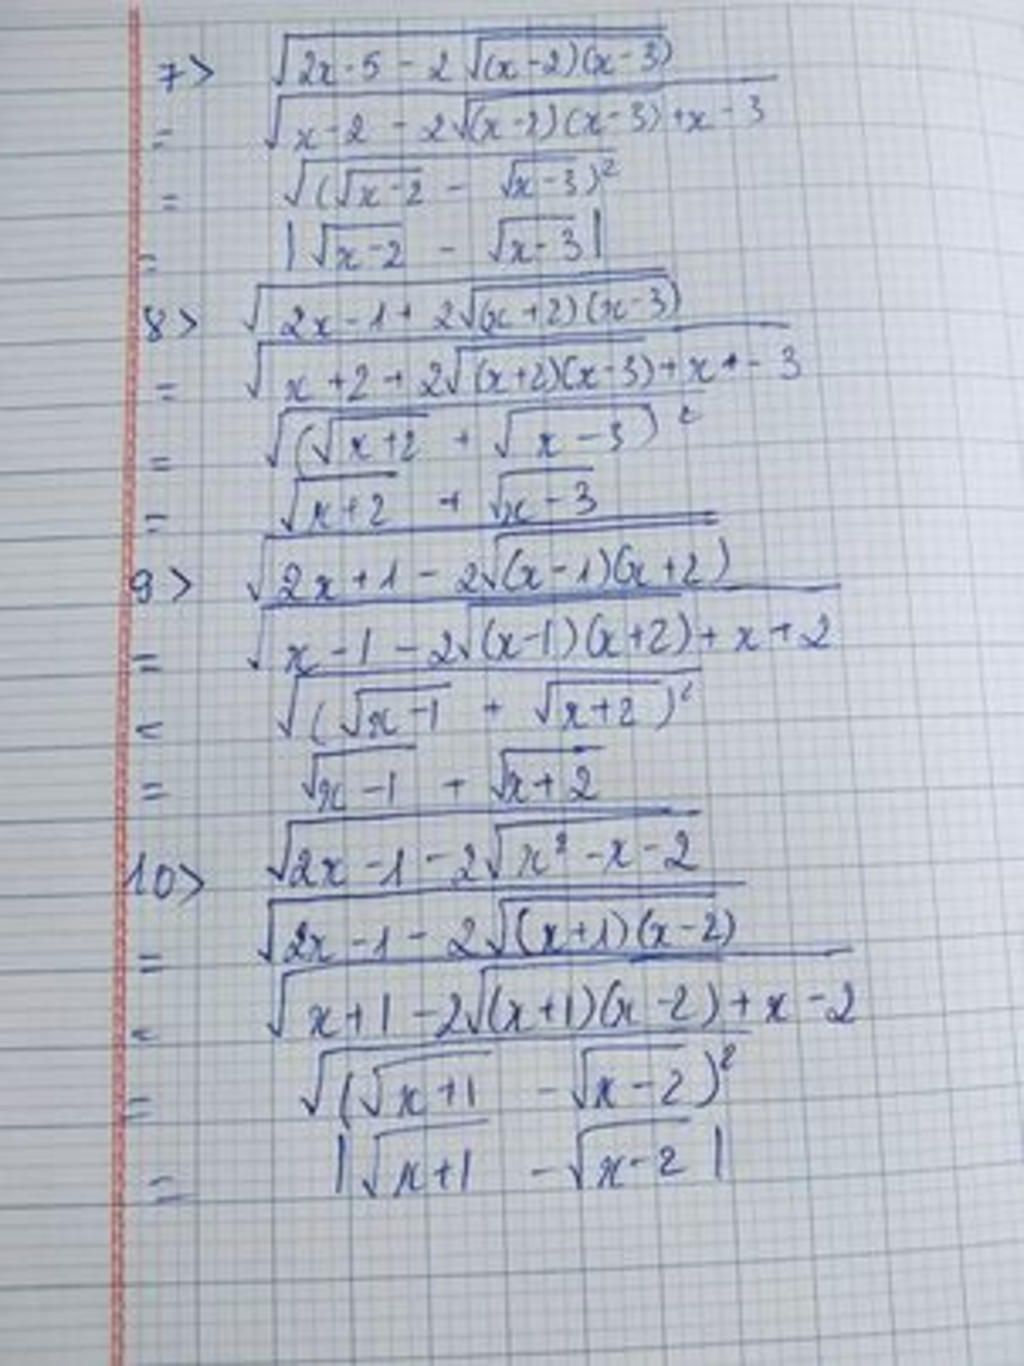 7> √(2x-5-2√((x-2)(x-3)))
= √(x-2-2√((x-2)(x-3))+x-3)
= √((√(x-2) - √(x-3))²)
= |√(x-2) - √(x-3)|
8> √(2x-1+2√((x+2)(x-3)))
= √(x+2+2√((x+2)(x-3))+x+-3)
= √((√(x+2) + √(x-3))²)
= √(x+2) + √(x-3)
9> √(2x+1-2√((x-1)(x+2)))
= √(x-1-2√((x-1)(x+2))+x+2)
= √((√(x-1) + √(x+2))²)
= √(x-1) + √(x+2)
10> √(2x-1-2√(x²-x-2))
= √(2x-1-2√((x+1)(x-2)))
= √(x+1-2√((x+1)(x-2))+x-2)
= √((√(x+1) - √(x-2))²)
= |√(x+1) - √(x-2)|